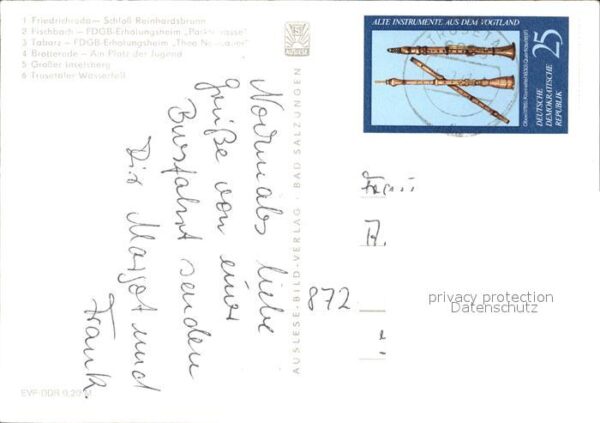 1 Friedrichroda — Schloß Reinhardsbrunn
2 Fischbach — FDGB-Erholungsheim
3 Tabarz — FDGB-Erholungsheim "Theo Neubauer"
4 Brotterode — Am Platz der Jugend
5 Großer Inselsberg
6 Trusetaler Wasserfall
Nochmals liebe
Grüße von einer
Busfahrt senden
Dir Margot und
Frank.
EVP DDR 0,20 M
AUSLESE-BILD-VERLAG · BAD SALZUNGEN
ALTE INSTRUMENTE AUS DEM VOGTLAND
25
DEUTSCHE
DEMOKRATISCHE
REPUBLIK
TRUSETAL
H.
872
privacy protection
Datenschutz